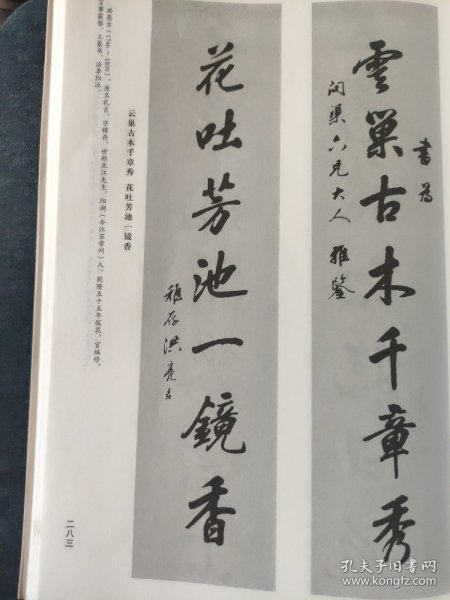 雲巢古木千章秀
書為
問渠六兄大人 雅鑒
花吐芳池一鏡香
稚存洪亮吉
云巢古木千章秀 花吐芳池一镜香
洪亮吉(1746-1809),原名礼吉,字稚存,世称北江先生,阳湖(今江苏常州)人。乾隆五十五年榜眼,官编修,
言事获咎。工篆书,法李阳冰。
二八三
孔夫子旧书网
www.kongfz.com